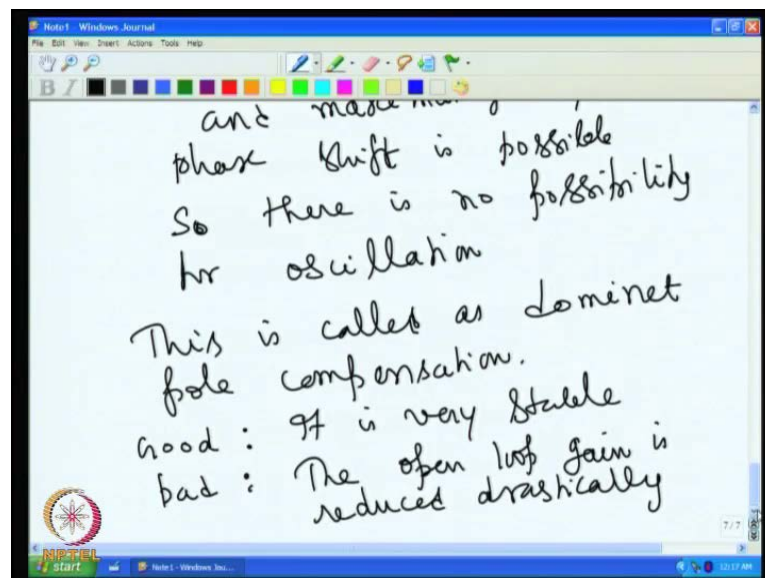 Note1 - Windows Journal
File Edit View Insert Actions Tools Help
and
phase shift is possible
So there is no possibility
for oscillation
This is called as dominet
pole compensation.
Good : It is very stable
bad : The open loop gain is
reduced drastically
7/7
NPTEL
start
Note1 - Windows Jou...
12:17 AM